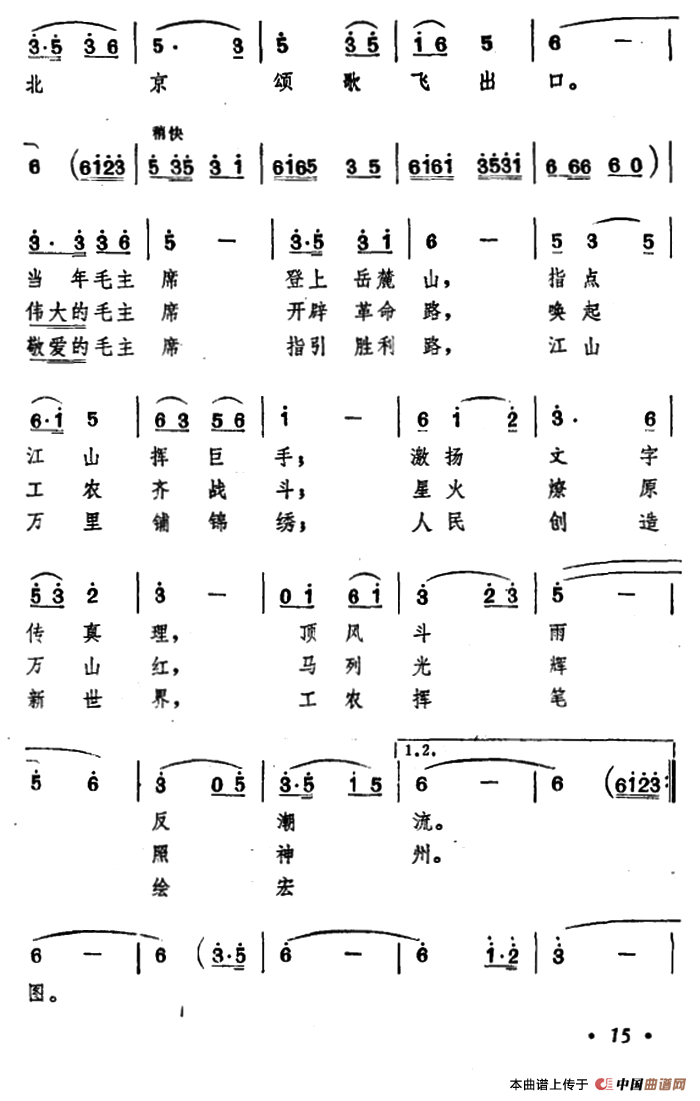 3·5 3 6 | 5· 3 | 5 3 5 | 1 6 5 | 6 — |
北 京 颂 歌 飞 出 口。
稍快
6 (6123 | 5 35 3 1 | 6165 3 5 | 6161 3531 | 6 66 6 0) |
3· 3 3 6 | 5 — | 3·5 3 1 | 6 — | 5 3 5 |
当 年 毛 主 席 登 上 岳 麓 山, 指 点
伟 大 的 毛 主 席 开 辟 革 命 路, 唤 起
敬 爱 的 毛 主 席 指 引 胜 利 路, 江 山
6·1 5 | 6 3 5 6 | 1 — | 6 1 2 | 3· 6 |
江 山 挥 巨 手; 激 扬 文 字
工 农 齐 战 斗; 星 火 燎 原
万 里 铺 锦 绣; 人 民 创 造
5 3 2 | 3 — | 0 1 6 1 | 3 2 3 | 5 — |
传 真 理, 顶 风 斗 雨
万 山 红, 马 列 光 辉
新 世 界, 工 农 挥 笔
1.2.
5 6 | 3 0 5 | 3·5 1 5 | 6 — | 6 (6123 :‖
反 潮 流。
照 神 州。
绘 宏
6 — | 6 (3·5 | 6 — | 6 1·2 | 3 — |
图。
• 15 •
本曲谱上传于 中国曲谱网